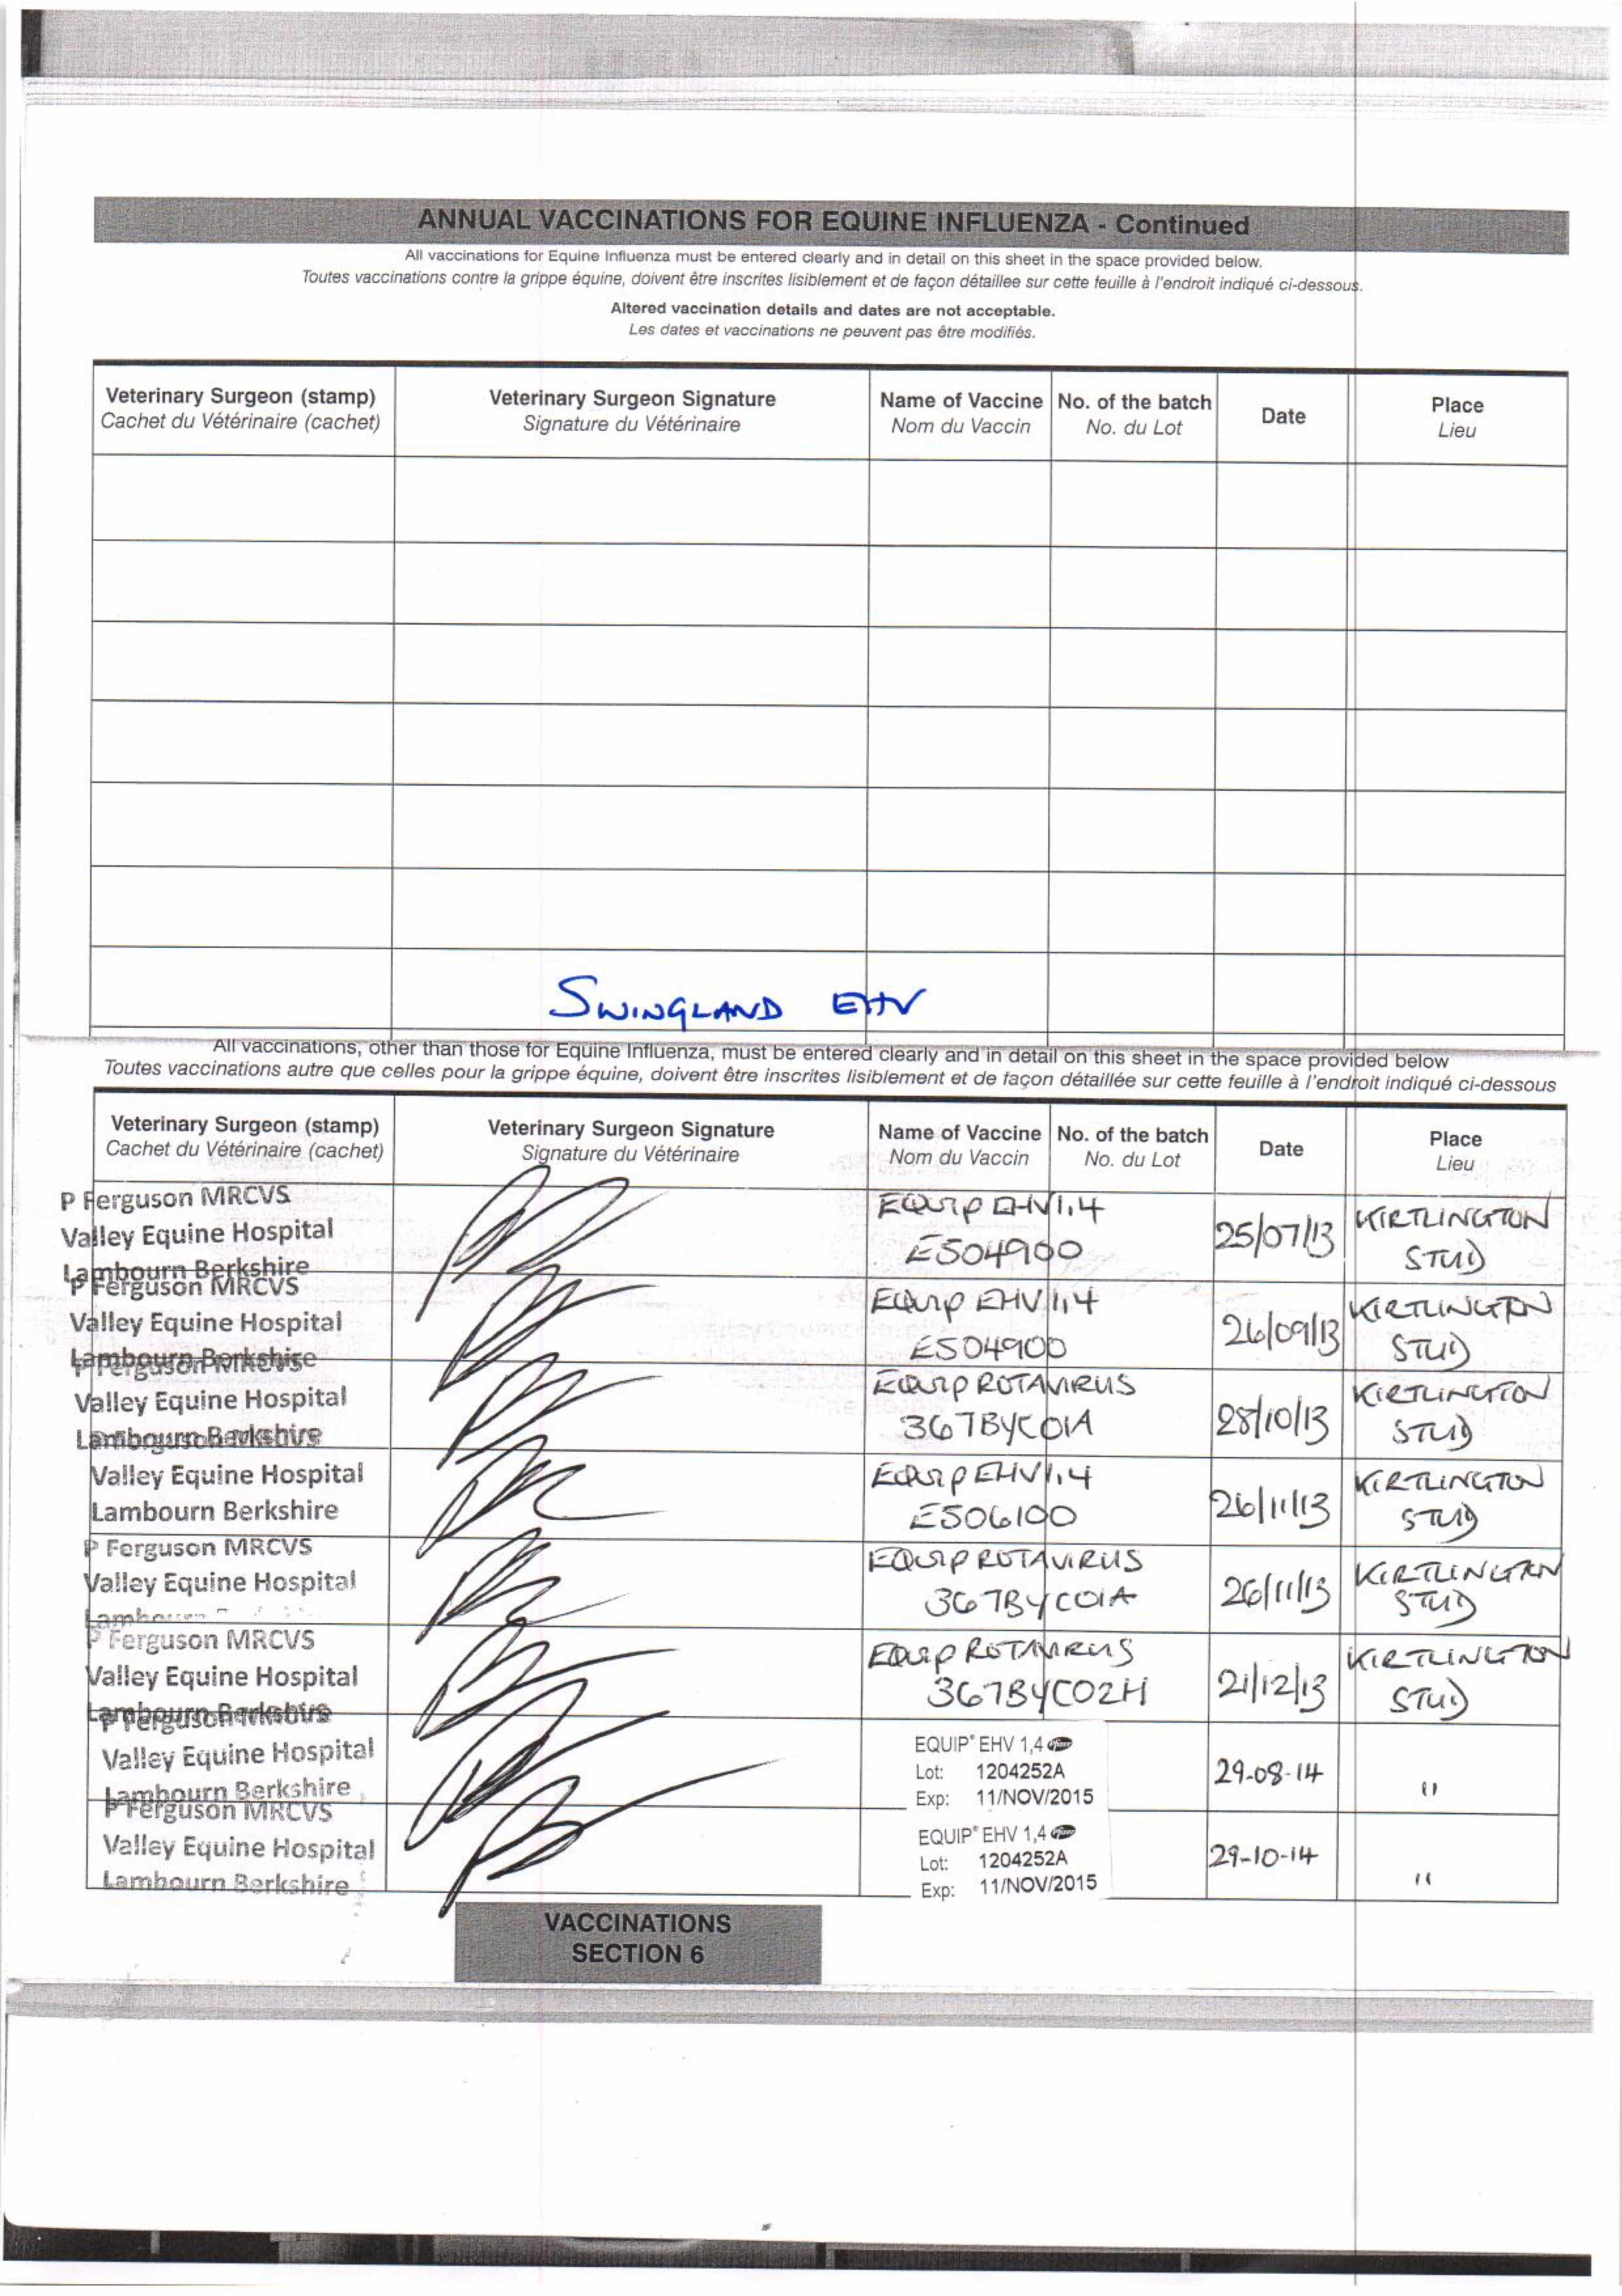 ANNUAL VACCINATIONS FOR EQUINE INFLUENZA - Continued
All vaccinations for Equine Influenza must be entered clearly and in detail on this sheet in the space provided below.
Toutes vaccinations contre la grippe équine, doivent être inscrites lisiblement et de façon détaillee sur cette feuille à l'endroit indiqué ci-dessous.
Altered vaccination details and dates are not acceptable.
Les dates et vaccinations ne peuvent pas être modifiés.
Veterinary Surgeon (stamp) Veterinary Surgeon Signature Name of Vaccine No. of the batch Date Place
Cachet du Vétérinaire (cachet) Signature du Vétérinaire Nom du Vaccin No. du Lot Lieu
SWINGLAND EHV
All vaccinations, other than those for Equine Influenza, must be entered clearly and in detail on this sheet in the space provided below
Toutes vaccinations autre que celles pour la grippe équine, doivent être inscrites lisiblement et de façon détaillée sur cette feuille à l'endroit indiqué ci-dessous
Veterinary Surgeon (stamp) Veterinary Surgeon Signature Name of Vaccine No. of the batch Date Place
Cachet du Vétérinaire (cachet) Signature du Vétérinaire Nom du Vaccin No. du Lot Lieu
P Ferguson MRCVS EQUIP EHV1,4 KIRTLINGTON
Valley Equine Hospital E504900 25/07/13 STUD
Lambourn Berkshire
P Ferguson MRCVS EQUIP EHV 1,4 KIRTLINGTON
Valley Equine Hospital E504900 26/09/13 STUD
Lambourn Berkshire
P Ferguson MRCVS EQUIP ROTAVIRUS KIRTLINGTON
Valley Equine Hospital 367BYC01A 28/10/13 STUD
Lambourn Berkshire
Valley Equine Hospital EQUIP EHV1,4 KIRTLINGTON
Lambourn Berkshire E506100 26/11/13 STUD
P Ferguson MRCVS EQUIP ROTAVIRUS KIRTLINGTON
Valley Equine Hospital 367BYC01A 26/11/13 STUD
P Ferguson MRCVS EQUIP ROTAVIRUS KIRTLINGTON
Valley Equine Hospital 367BYC02H 21/12/13 STUD
Lambourn Berkshire
P Ferguson MRCVS EQUIP® EHV 1,4 Pfizer
Valley Equine Hospital Lot: 1204252A 29-08-14 "
Lambourn Berkshire Exp: 11/NOV/2015
P Ferguson MRCVS EQUIP® EHV 1,4 Pfizer
Valley Equine Hospital Lot: 1204252A 29-10-14 "
Lambourn Berkshire Exp: 11/NOV/2015
VACCINATIONS
SECTION 6